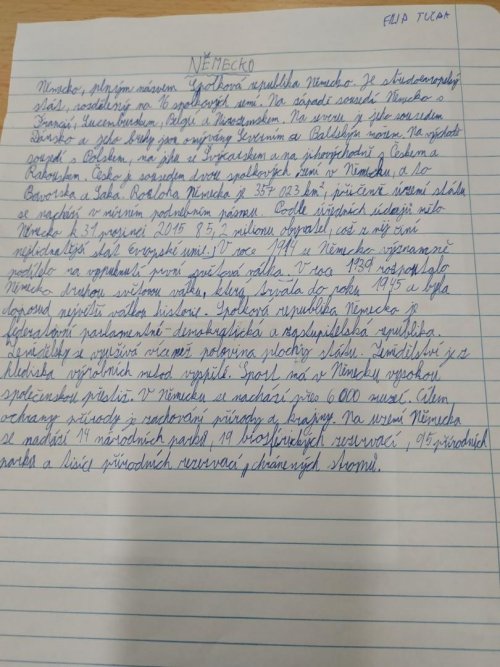 TUČAK
NĚMECKO
Německo, plným názvem Spolková republika Německo. Je středoevropský
stát, rozdělený na 16 spolkových zemí. Na západě sousedí Německo s
Francií, Lucemburskem, Belgií a Nizozemskem. Na severu je jeho sousedem
Dánsko a jeho břehy jsou omývány Severním a Baltským mořem. Na východě
sousedí s Polskem, na jihu se Švýcarskem a na jihovýchodně s Českem a
Rakouskem. Česko je sousedem dvou spolkových zemí v Německu, a to
Bavorska a Saska. Rozloha Německa je 357 023 km², přičemž území státu
se nachází v mírném podnebném pásmu. Podle úředních údajů mělo
Německo k 31 prosinci 2015 82,2 milionu obyvatel, což z něj činí
nejlidnatější stát Evropské unie. V roce 1914 se Německo významně
podílelo na vypuknutí první světová válka. V roce 1939 rozpoutalo
Německo druhou světovou válku, která trvala do roku 1945 a byla
doposud největší válkou historie. Spolková republika Německo je
federativní parlamentně-demokratická a zastupitelská republika.
Zemědělsky se využívá více než polovina plochy státu. Zemědělství je z
hlediska výrobních metod vyspělé. Sport má v Německu vysokou
společenskou prestiž. V Německu se nachází přes 6 000 muzeí. Cílem
ochrany přírody je zachování přírody a krajiny. Na území Německa
se nachází 14 národních parků, 19 biosférických rezervací, 95 přírodních
parků a tisíce přírodních rezervací, chráněných stromů.